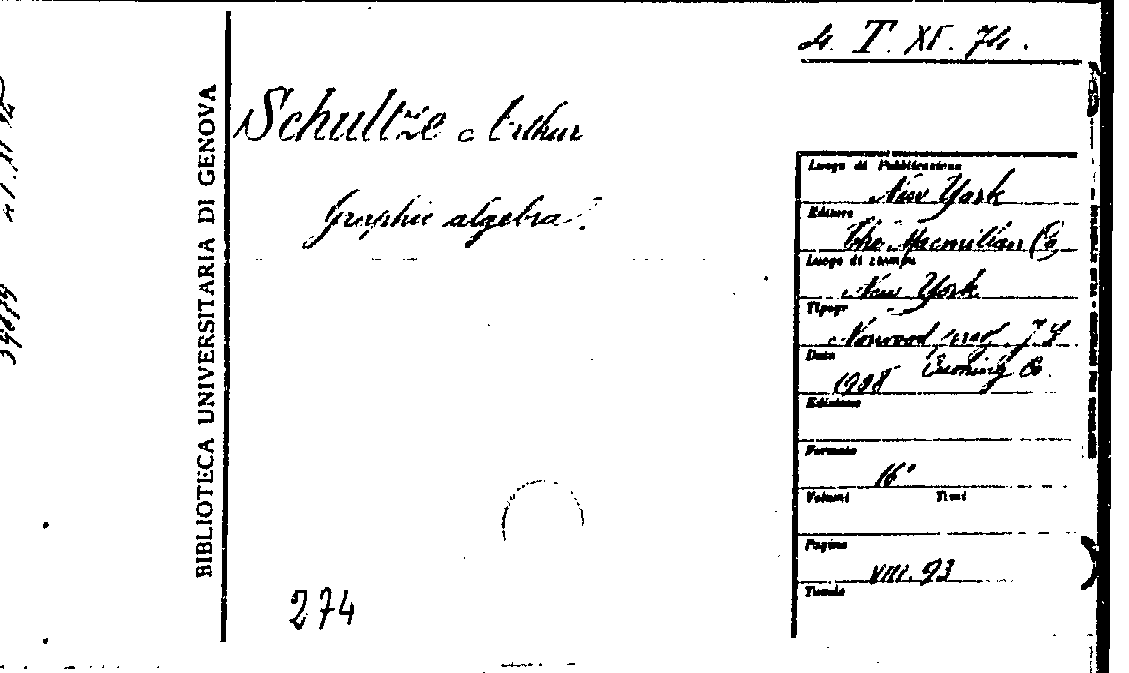 4. T. XI. 74.
BIBLIOTECA UNIVERSITARIA DI GENOVA
Schultze Arthur
Graphic algebra.
Luogo di Pubblicazione
New York
Editore
The Macmillan Co
Luogo di stampa
New York
Tipogr
Norwood J. S
Cushing Co.
Data
1908
Edizione
Formato
16°
Volumi Tomi
Pagine
VIII. 93
Tavole
274